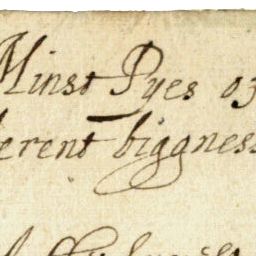 Minst Pyes of
erent biggness